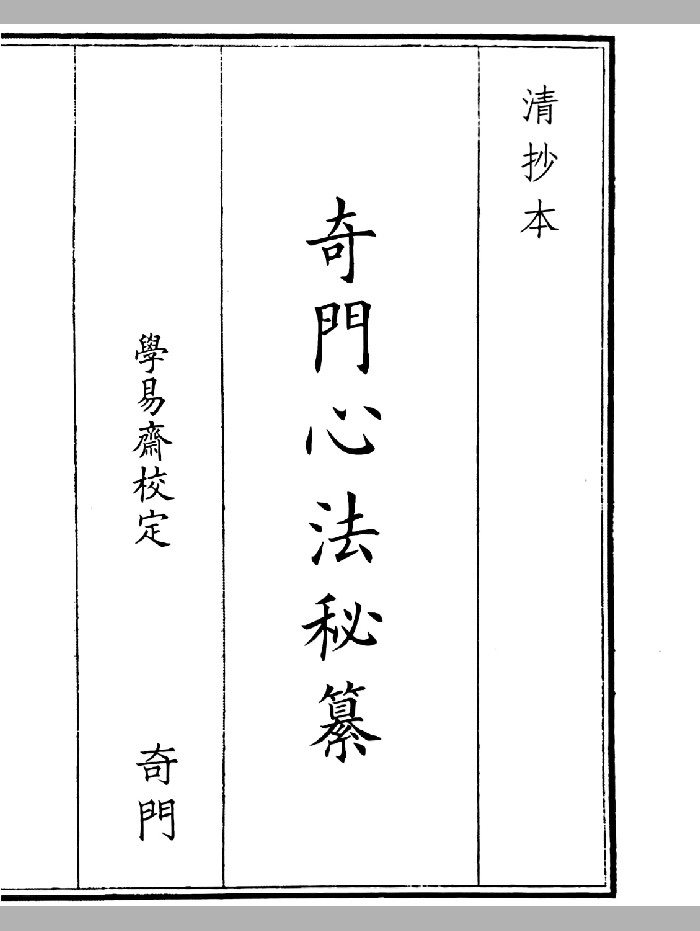 清抄本
奇門心法秘纂
學易齋校定
奇門